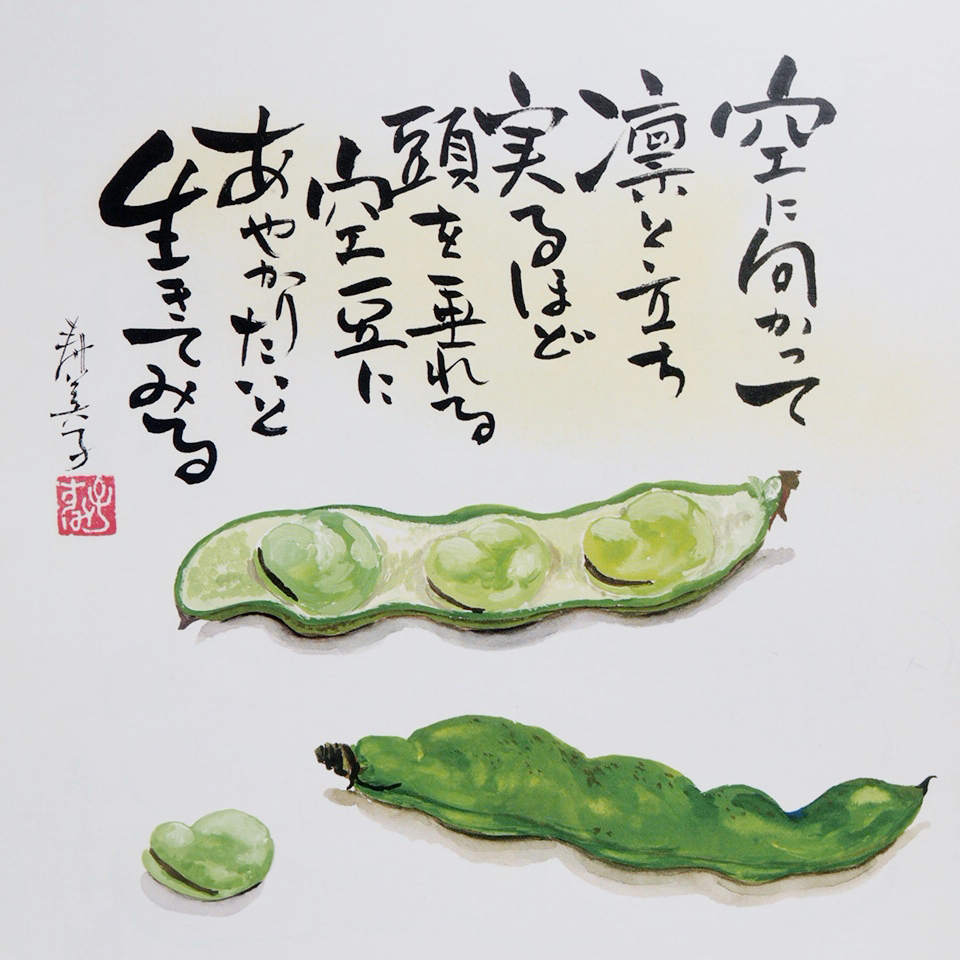 空に向かって
凛と立ち
実るほど
頭を垂れる
空豆に
あやかりたいと
生きてみる
寿美子